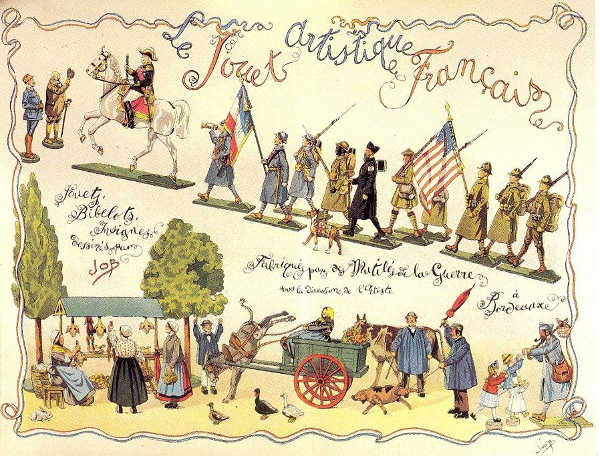 Le Jouet Artistique Français
Jouets,
Bibelots,
Insignes
Dessinés par
JOB
Fabriqués par des Mutilés de la Guerre
sous la Direction de l'Artiste
à
Bordeaux
JOB